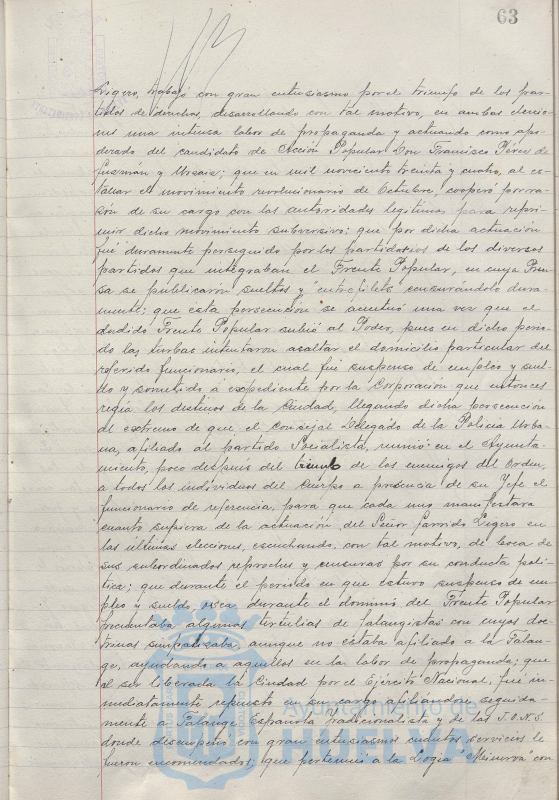 63
Ligero, trabajó con gran entusiasmo por el triunfo de los par-
tidos de derechas, desarrollando con tal motivo, en ambas eleccio-
nes una intensa labor de propaganda y actuando como apo-
derado del candidato de Acción Popular Don Francisco Pérez de
Guzmán y Urzaiz; que en mil novecientos treinta y cuatro, al es-
tallar el movimiento revolucionario de Octubre, cooperó por ra-
zón de su cargo con las autoridades legítimas para repri-
mir dicho movimiento subversivo; que por dicha actuación
fué duramente perseguido por los partidarios de los diversos
partidos que integraban el Frente Popular, en cuya Pren-
sa se publicaron sueltos y "entrefilets" censurándolo dura-
mente; que esta persecución se acentuó una vez que el
aludido Frente Popular subió al Poder, pues en dicho perio-
do las turbas intentaron asaltar el domicilio particular del
referido funcionario, el cual fué suspenso de empleo y suel-
do y sometido a expediente por la Corporación que entonces
regía los destinos de la Ciudad, llegando dicha persecución
al extremo de que el Concejal Delegado de la Policía Urba-
na, afiliado al partido Socialista, reunió en el Ayunta-
miento, poco después del triunfo de los enemigos del Orden,
a todos los individuos del Cuerpo a presencia de su Jefe el
funcionario de referencia, para que cada uno manifestara
cuanto supiera de la actuación del Señor Garrido Ligero en
las últimas elecciones, escuchando, con tal motivo, de boca de
sus subordinados reproches y censuras por su conducta polí-
tica; que durante el periodo en que estuvo suspenso de em-
pleo y sueldo, o sea durante el dominio del Frente Popular
frecuentaba algunas tertulias de falangistas con cuyas doc-
trinas simpatizaba, aunque no estaba afiliado a la Falan-
ge, ayudando a aquellos en la labor de propaganda; que
al ser liberada la Ciudad por el Ejército Nacional, fué in-
mediatamente repuesto en su cargo afiliándose seguida-
mente a Falange Española Tradicionalista y de las J.O.N.S.
donde desempeñó con gran entusiasmo cuantos servicios le
fueron encomendados; que perteneció a la Logia "Minerva" con
Ayuntamiento de
HUELVA